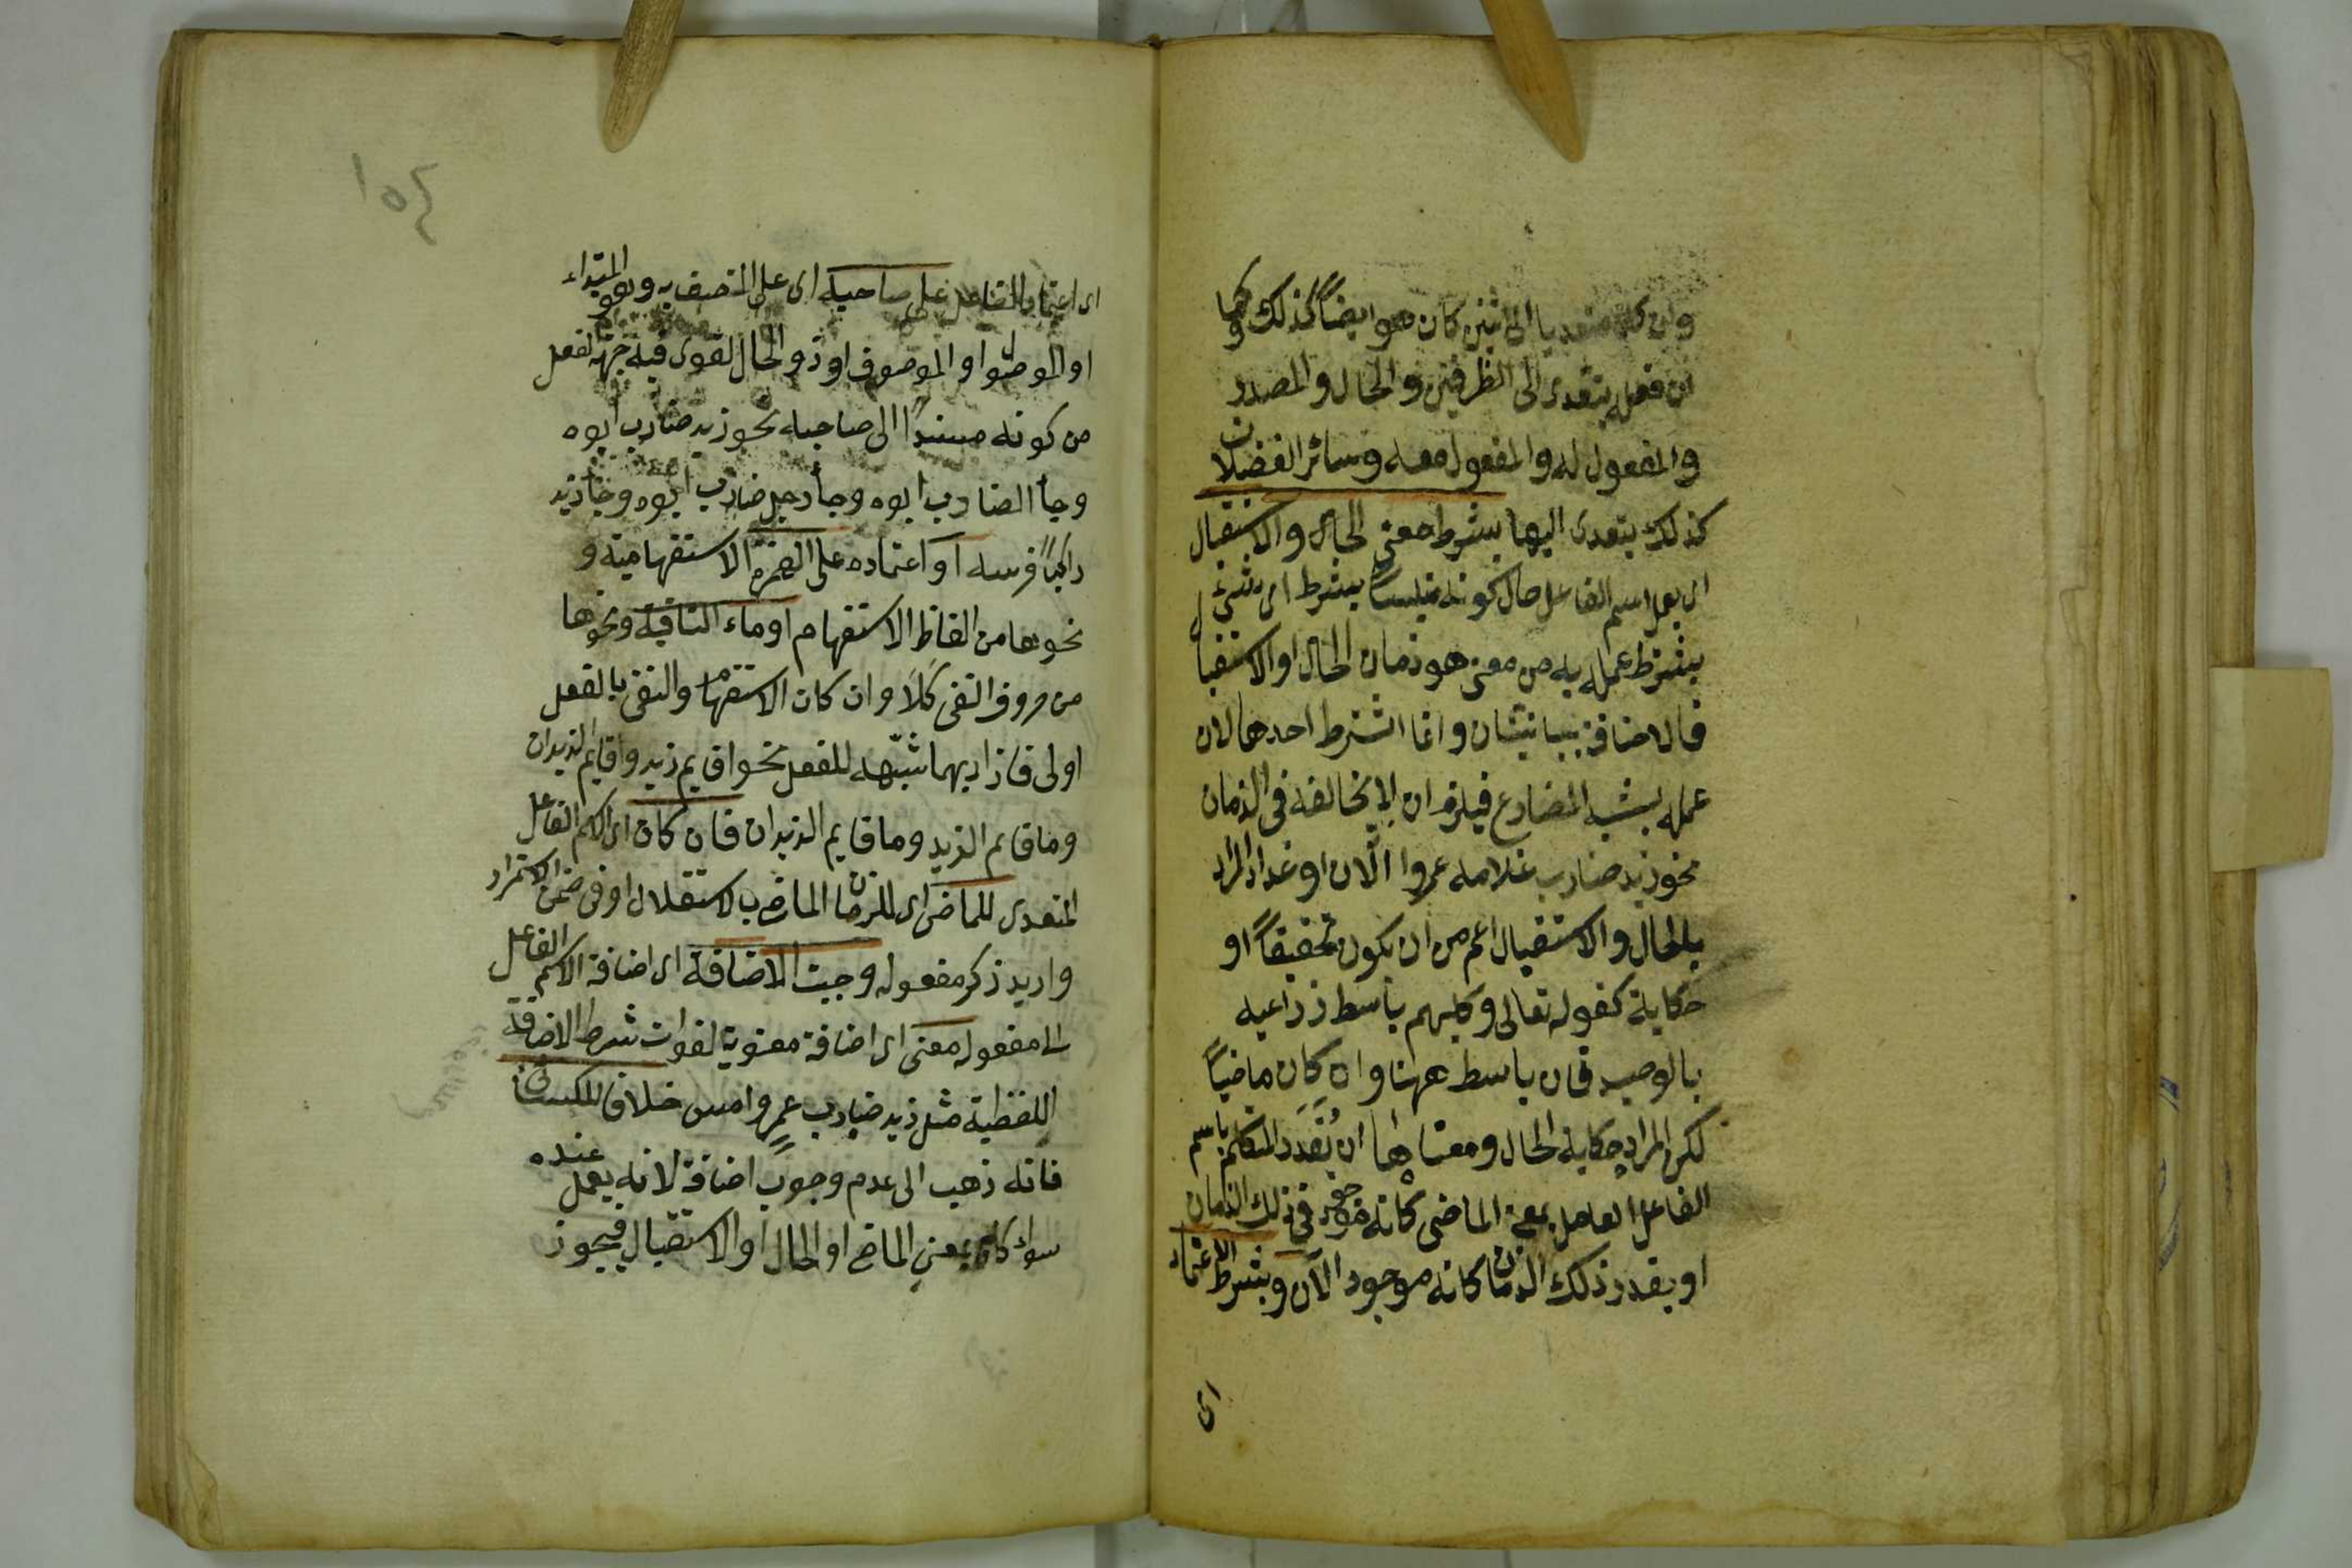 وان كان متعديا الى اثنين كان هو ايضاً كذلك وكما
ان فعله يتعدى الى الظرفين والحال والمصدر
والمفعول له والمفعول معه وسائر الفضلات
كذلك يتعدى اليها بشرط معنى الحال والاستقبال
اى يعمل اسم الفاعل حال كونه متلبساً بشرط اى بشئ
يشترط عمله به من معنى هو زمان الحال او الاستقبال
فالاضافة بيانيتان وانما اشترط احدهما لان
عمله بشبه المضارع فيلزم ان لا يخالفه فى الزمان
نحو زيد ضارب غلامه عمروا الآن او غدا والمراد
بالحال والاستقبال اعم من ان يكون تحقيقاً او
حكاية كقوله تعالى وكلبهم باسط ذراعيه
بالوصيد فان باسط ههنا وان كان ماضياً
لكن المراد حكاية الحال ومعناها ان يُقَدِّر المتكلم باسم
الفاعل العامل بمعنى الماضى كانه موجود فى ذلك الزمان
او يقدر ذلك الزمان كانه موجود الآن وبشرط الاعتماد
اى
١٥٤
اى اعتماد الفاعل على صاحبه اى على المتصف به وهو المبتداء
او الموصول او الموصوف او ذو الحال لقوى فيه جهة لفعل
من كونه مسنداً الى صاحبه نحو زيد ضارب ابوه
وجأ الضارب ابوه وجأ رجل ضارب ابوه وجأ زيد
راكباً فرسه او اعتماده على الهمزة الاستفهامية و
نحوها من الفاظ الاستفهام او ماء النافية ونحوها
من حروف النفى كَلَا وان كان الاستفهام والنفى بالفعل
اولى فازاد بهما شبّهه للفعل نحو اقايم زيد واقايم الزيدان
وما قايم الزيد وما قايم الزيدان فان كان اى اسم الفاعل
المتعدى للماضى اى للزمان الماضى بالاستقلال او فى ضمن الاستمرار
واريد ذكر مفعوله وجبت الاضافة اى اضافة الاسم الفاعل
الى مفعوله معنى اى اضافة معنوية لفوات شرط الاضافة
اللفظية مثل زيد ضارب عمرٍو امس خلافا للكسائى
فانه ذهب الى عدم وجوب اضافة لانه يعمل عنده
سواء كان بمعنى الماضى او الحال او الاستقبال فيجوز